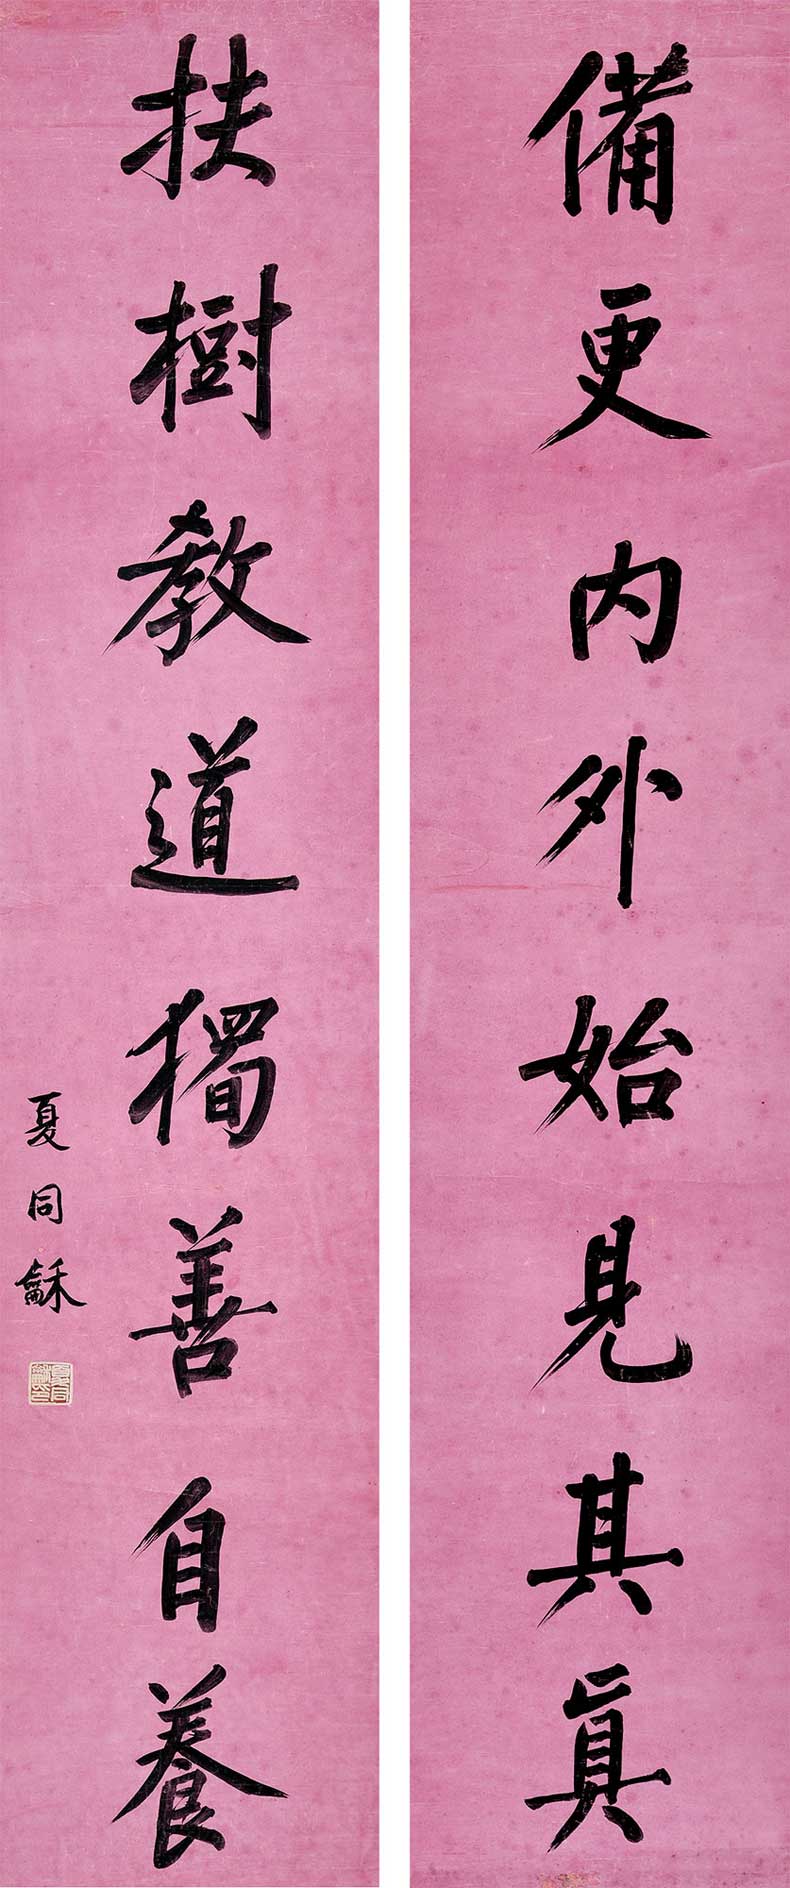 備更内外始見其眞
扶樹教道獨善自養
夏同龢